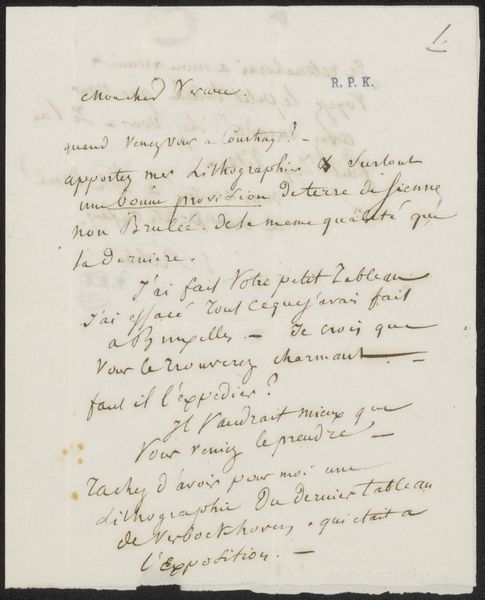 1.
R. P. K.
Mon cher Vraue.
quand venez vous a Courtray? -
apportez mes Lithographies & Surtout
une bonne provision de terre de Sienne
non Brulée. de la meme qualité que
la derniere.
J'ai fait Votre petit Tableau
J'ai effacé Tout ce que j'avais fait
a Bruxelles — Je crois que
Vous le trouverez charmant —
faut il l'expedier?
Il Vaudrait mieux que
Vous veniez le prendre —
Tachez d'avoir pour moi une
Lithographie Du dernier tableau
de Verboekhoven, qui etait a
l'Exposition. —